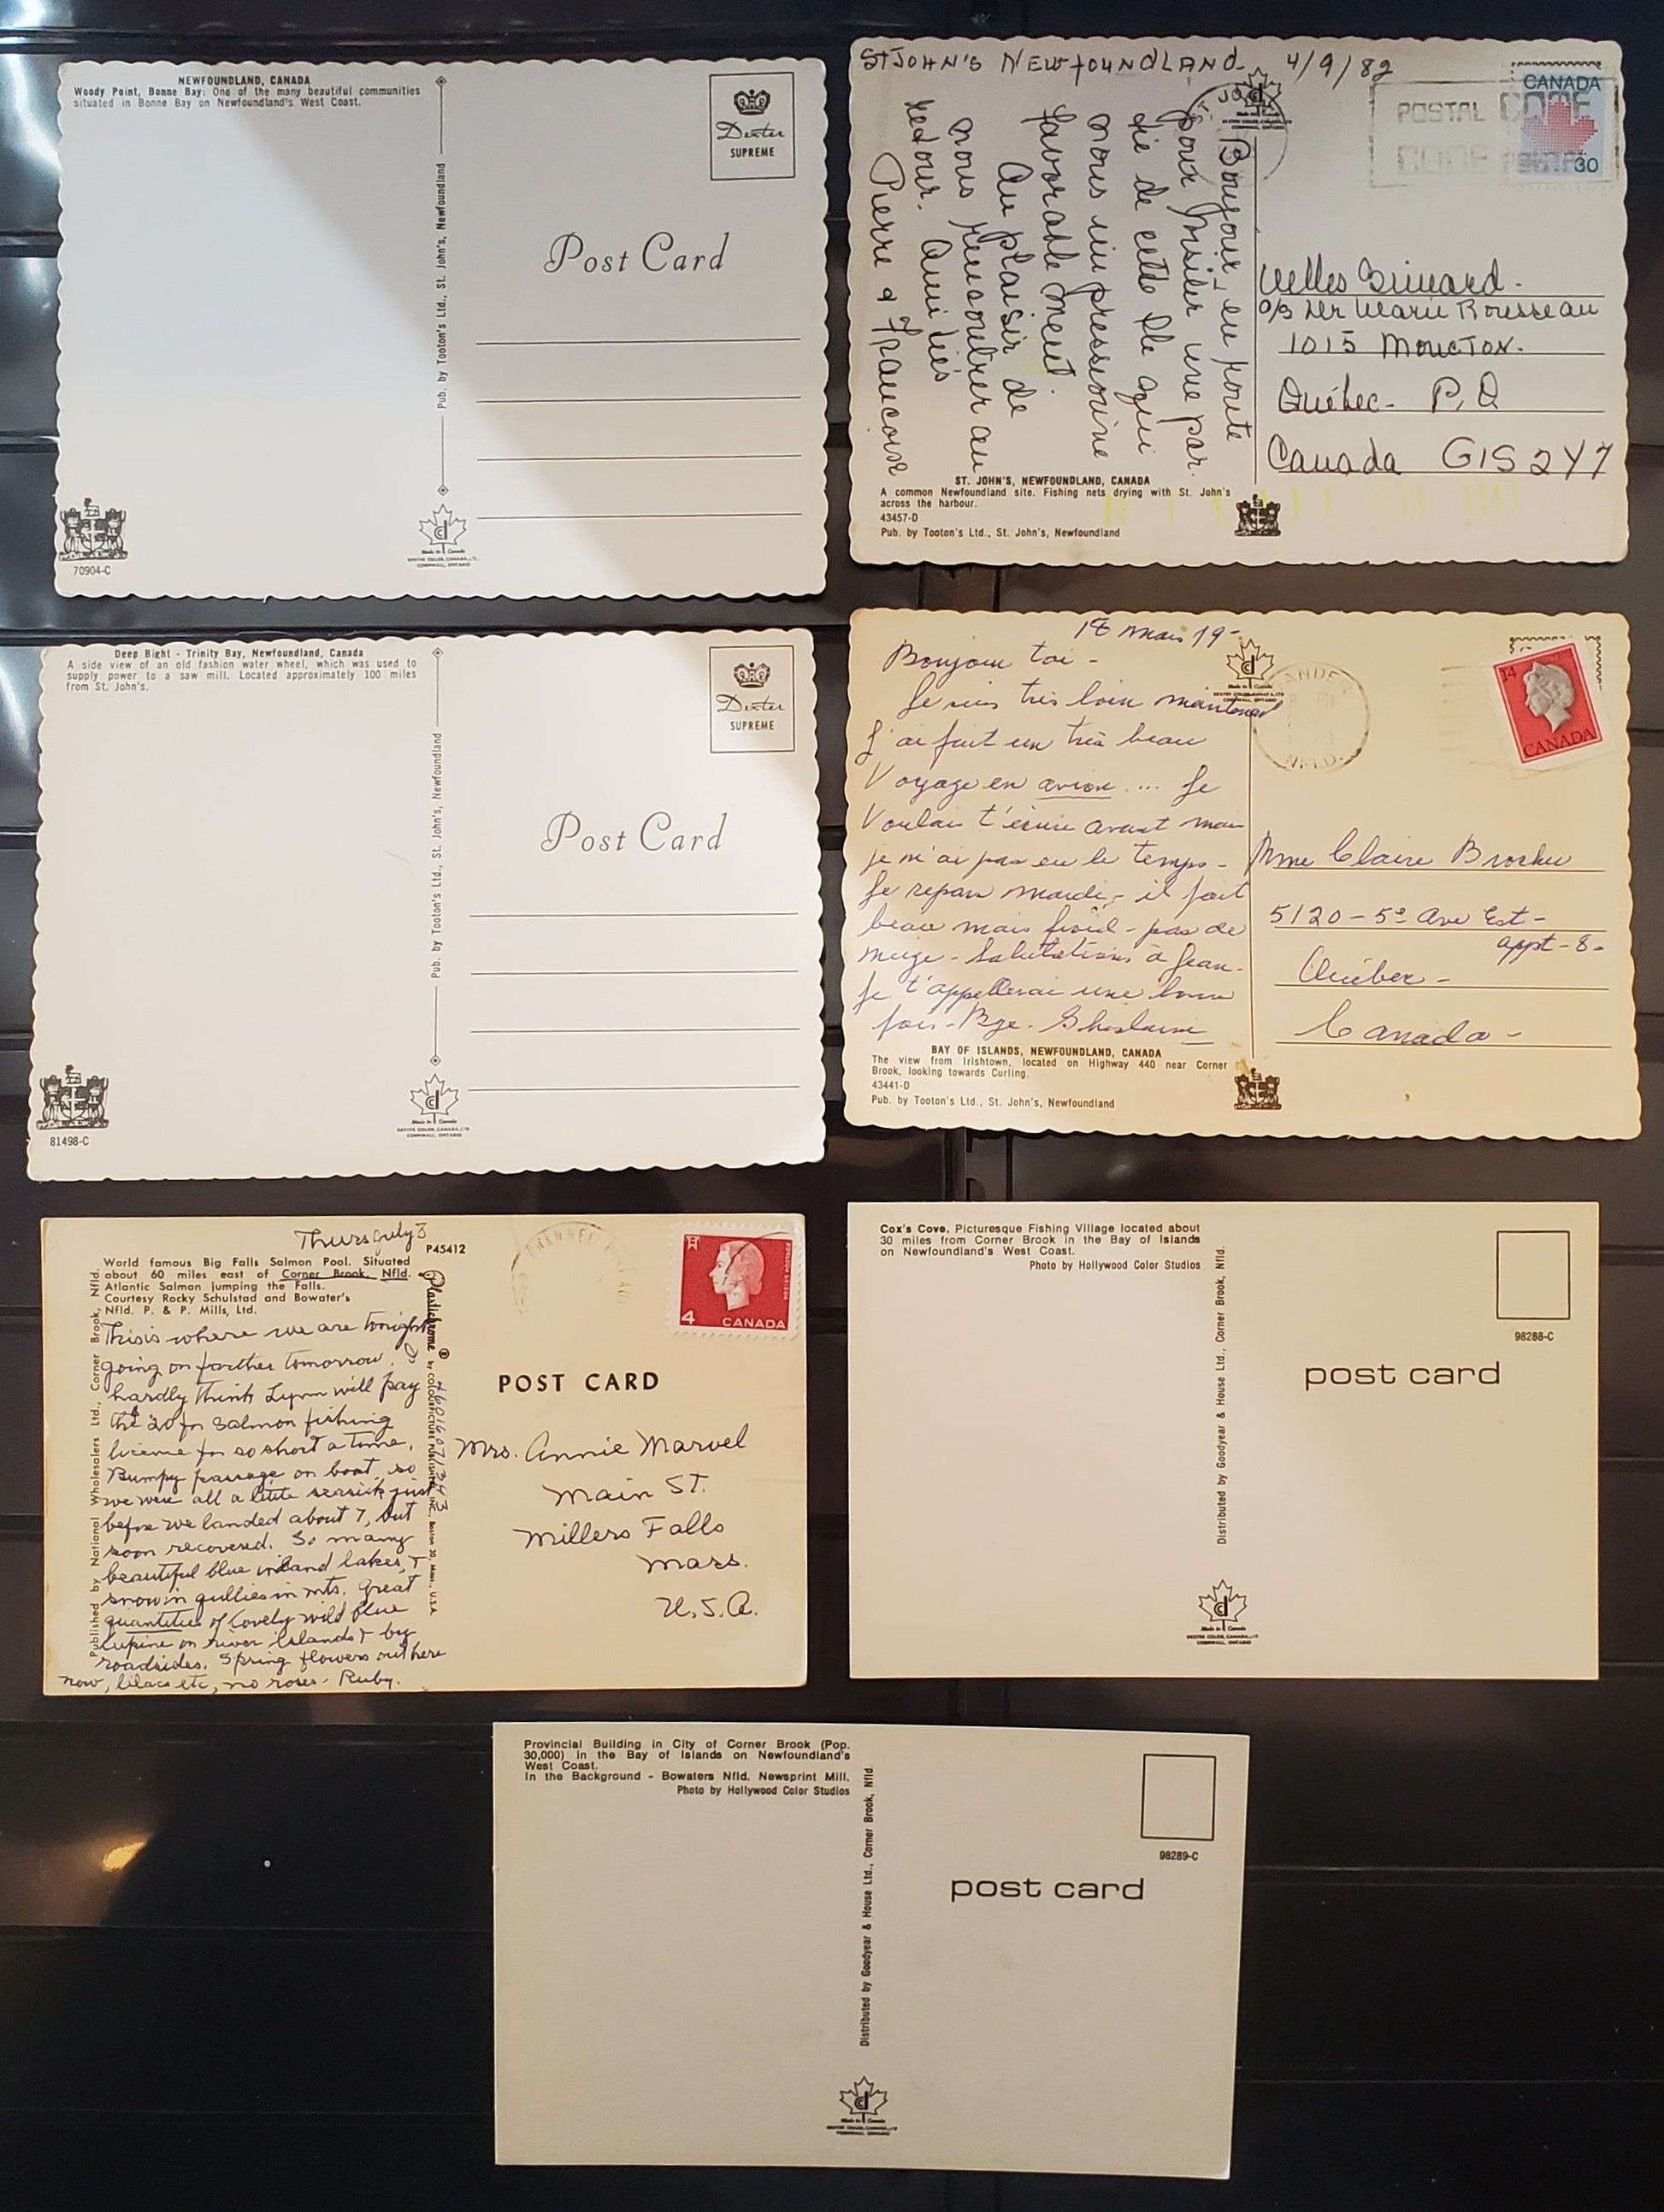 NEWFOUNDLAND, CANADA
Woody Point, Bonne Bay: One of the many beautiful communities
situated in Bonne Bay on Newfoundland's West Coast.
Pub. by Tooton's Ltd., St. John's, Newfoundland
Dexter
SUPREME
Post Card
70904-C
Made in Canada
DEXTER COLOR, CANADA, LTD.
CORNWALL, ONTARIO
ST JOHN'S NEWFOUNDLAND. 4/9/82
Bonjour, en route
pour visiter une par
tie de cette île qui
nous impressionne
favorablement.
Au plaisir de
nous rencontrer au
retour. Amitiés
Pierre & Francoise
POSTAL CODE
CODE POSTAL
CANADA
30
o/s Marie Rousseau
1015 MONCTON.
Québec- P.Q
Canada G1S 2Y7
ST. JOHN'S, NEWFOUNDLAND, CANADA
A common Newfoundland site. Fishing nets drying with St. John's
across the harbour.
43457-D
Pub. by Tooton's Ltd., St. John's, Newfoundland
Deep Bight - Trinity Bay, Newfoundland, Canada
A side view of an old fashion water wheel, which was used to
supply power to a saw mill. Located approximately 100 miles
from St. John's.
Pub. by Tooton's Ltd., St. John's, Newfoundland
Dexter
SUPREME
Post Card
81498-C
Made in Canada
DEXTER COLOR, CANADA, LTD.
CORNWALL, ONTARIO
18 mars 79-
Bonjour toi -
Je suis très loin maintenant
J'ai fait un très beau
Voyage en avion .... Je
Voulais t'écrire avant mais
je n'ai pas eu le temps -
Je repars mardi - il fait
beau mais froid - pas de
neige - Salutations à Jean-
Je t'appellerai une bonne
fois - Bye. Ghislaine
GANDER
NFLD.
14
CANADA
Mme Claire Brochu
5120 - 5e Ave Est -
appt - 8 -
Québec -
Canada -
BAY OF ISLANDS, NEWFOUNDLAND, CANADA
The view from Irishtown, located on Highway 440 near Corner
Brook, looking towards Curling.
43441-D
Pub. by Tooton's Ltd., St. John's, Newfoundland
Thurs July 8
P45412
World famous Big Falls Salmon Pool. Situated
about 60 miles east of Corner Brook, Nfld.
Atlantic Salmon jumping the Falls.
Courtesy Rocky Schulstad and Bowater's
Nfld. P. & P. Mills, Ltd.
Published by National Wholesalers Ltd., Corner Brook, Nfld.
This is where we are tonight
going on farther tomorrow. I
hardly think Lynn will pay
the $20 for salmon fishing
license for so short a time.
Bumpy passage on boat, so
we were all a little seasick just
before we landed about 7, but
soon recovered. So many
beautiful blue inland lakes, +
snow in gullies in mts. Great
quantities of lovely wild blue
lupine on river islands + by
roadsides. Spring flowers out here
now, lilacs etc, no roses - Ruby.
Plastichrome ® by COLOURPICTURE PUBLISHERS, INC., Boston 30, Mass., U.S.A.
4
CANADA
POST CARD
Mrs. Annie Marvel
Main St.
Millers Falls
Mass.
U.S.A.
Cox's Cove. Picturesque Fishing Village located about
30 miles from Corner Brook in the Bay of Islands
on Newfoundland's West Coast.
Photo by Hollywood Color Studios
Distributed by Goodyear & House Ltd., Corner Brook, Nfld.
98288-C
post card
Made in Canada
DEXTER COLOR, CANADA, LTD.
CORNWALL, ONTARIO
Provincial Building in City of Corner Brook (Pop.
30,000) in the Bay of Islands on Newfoundland's
West Coast.
In the Background - Bowaters Nfld. Newsprint Mill.
Photo by Hollywood Color Studios
Distributed by Goodyear & House Ltd., Corner Brook, Nfld.
98289-C
post card
Made in Canada
DEXTER COLOR, CANADA, LTD.
CORNWALL, ONTARIO